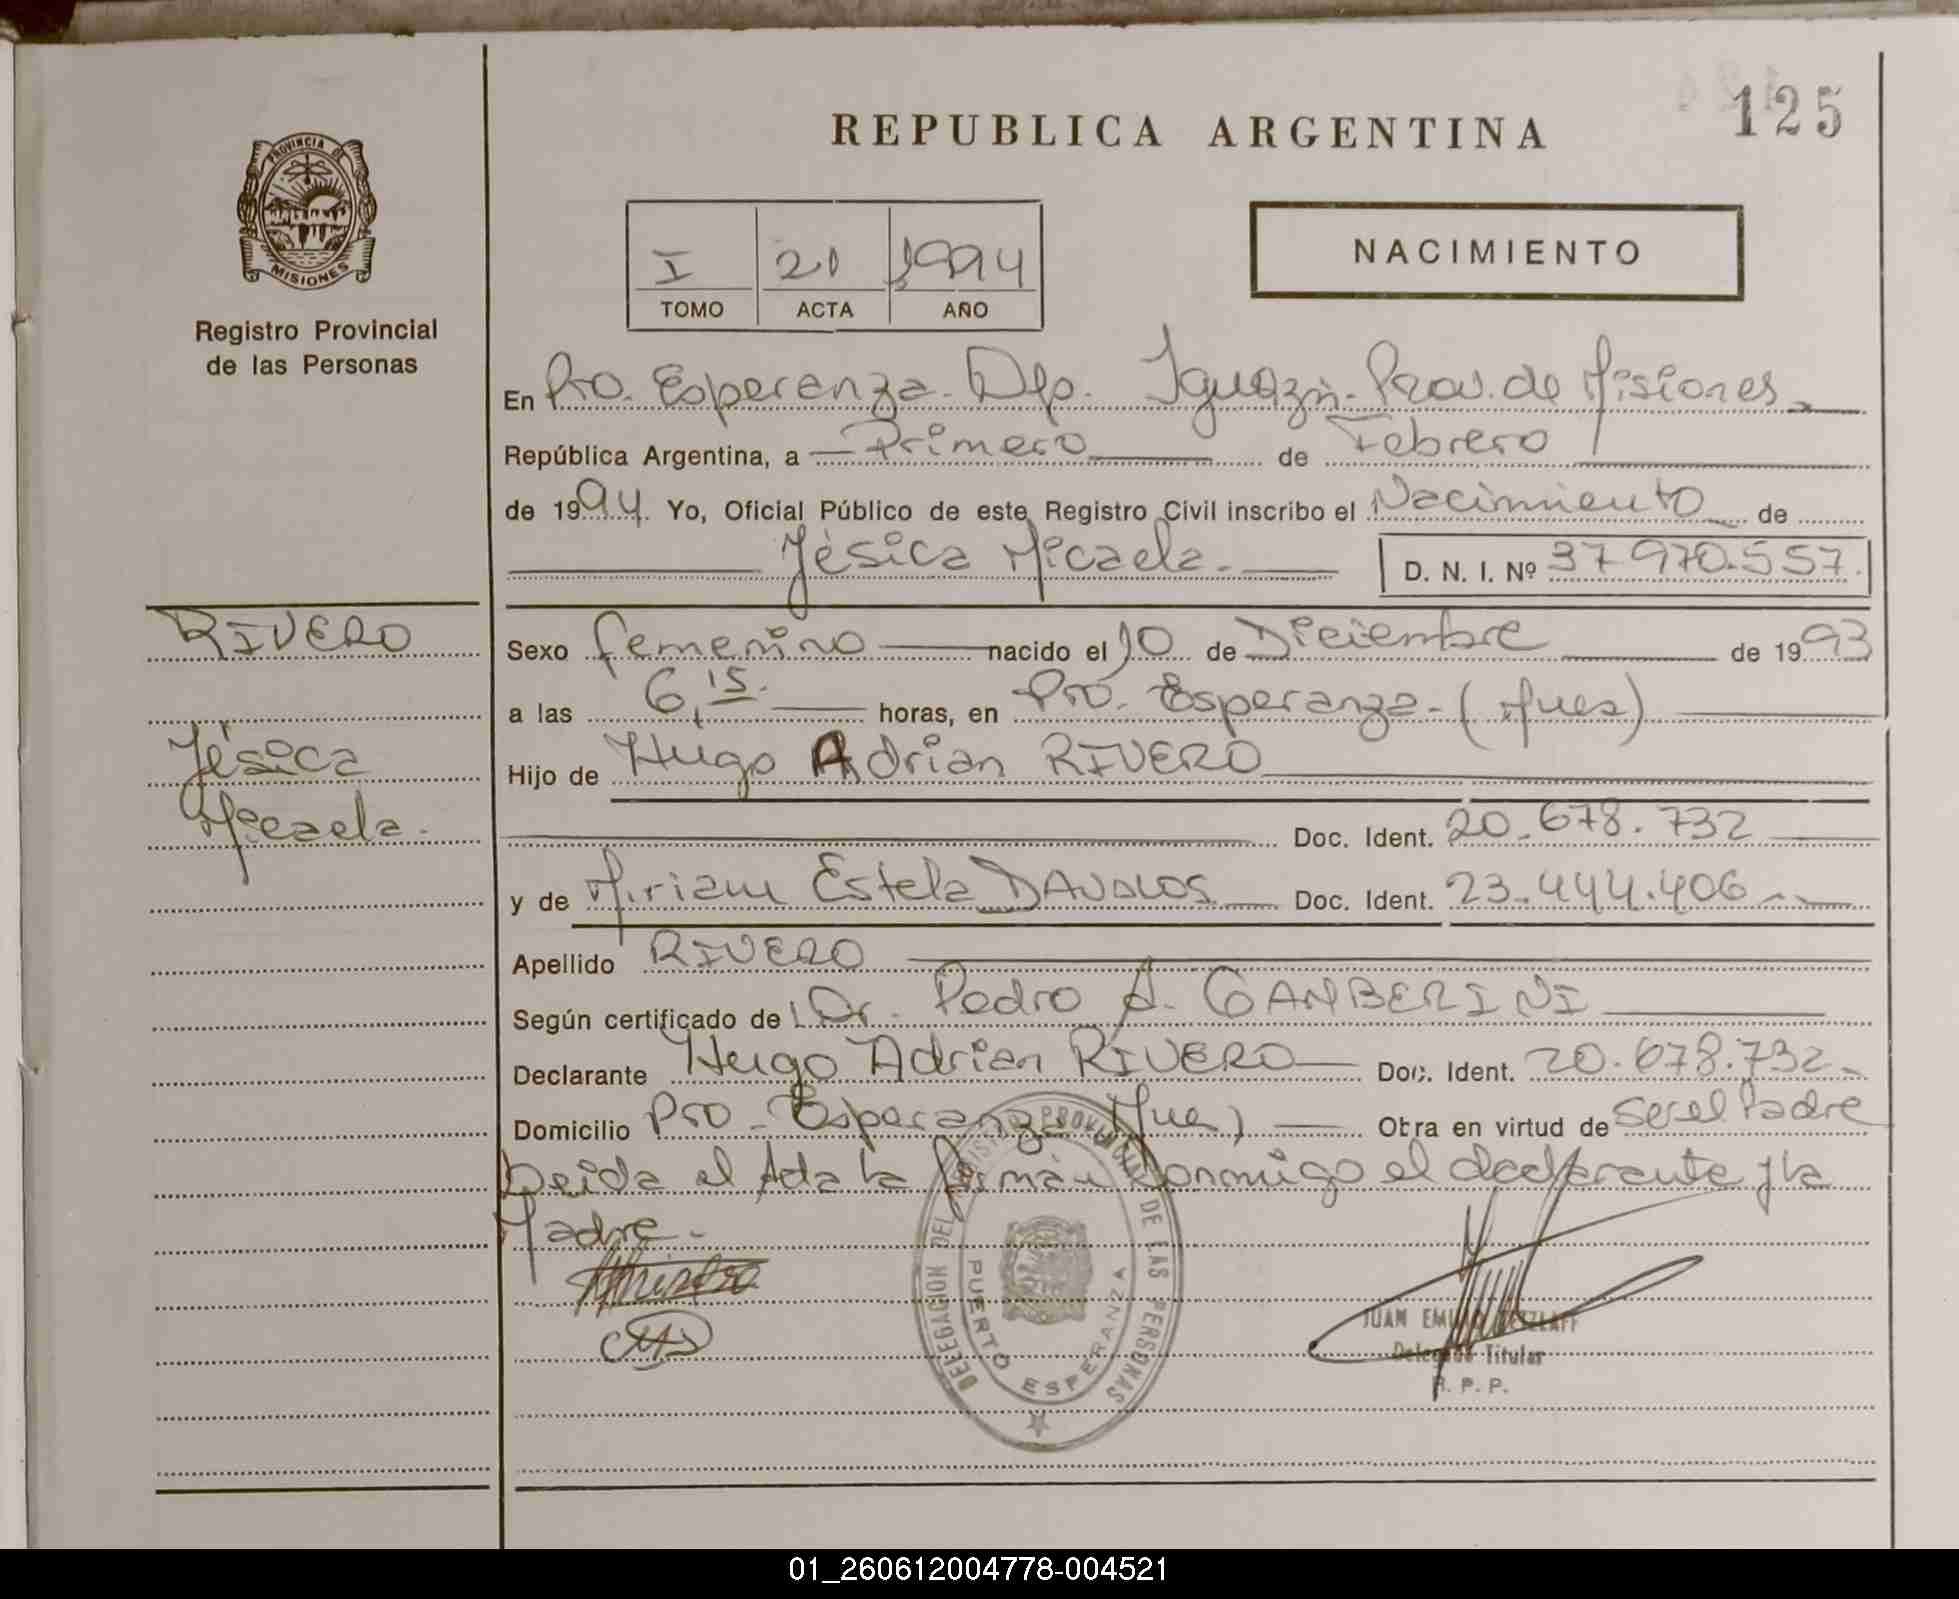 125
REPUBLICA ARGENTINA
PROVINCIA DE
MISIONES
Registro Provincial
de las Personas
I 21 1994
TOMO ACTA AÑO
NACIMIENTO
En Pto. Esperanza - Dep. Iguazú - Prov. de Misiones
República Argentina, a Primero de Febrero
de 1994. Yo, Oficial Público de este Registro Civil inscribo el Nacimiento de
Jésica Micaela. D. N. I. Nº 37.970.557.
RIVERO
Jésica
Micaela.
Sexo femenino nacido el 10 de Diciembre de 1993
a las 6,15. horas, en Pto. Esperanza - (Mnes)
Hijo de Hugo Adrian RIVERO
Doc. Ident. 20.678.732
y de Miriam Estela DAVALOS Doc. Ident. 23.444.406
Apellido RIVERO
Según certificado de Dr. Pedro A. GAMBERINI
Declarante Hugo Adrian RIVERO Doc. Ident. 20.678.732
Domicilio Pto. Esperanza Mnes) Obra en virtud de ser el Padre
Leida el Acta la firman conmigo el declarante y la
Madre.-
DELEGACION DEL REGISTRO PROVINCIAL DE LAS PERSONAS
PUERTO ESPERANZA
JUAN
Delegado Titular
R. P. P.
01_260612004778-004521